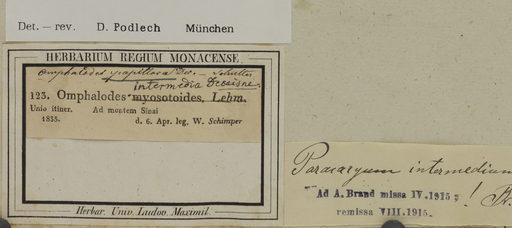 Det. — rev. D. Podlech München
HERBARIUM REGIUM MONACENSE.
Omphalodes papillosa
intermedia Decaisne.
123. Omphalodes myosotoides, Lehm.
Unio itiner. Ad montem Sinai
1835. d. 6. Apr. leg. W. Schimper
Herbar. Univ. Ludov. Maximil.
Paracaryum intermedium
Ad A. Brand missa IV. 1915; !
remissa VIII. 1915.